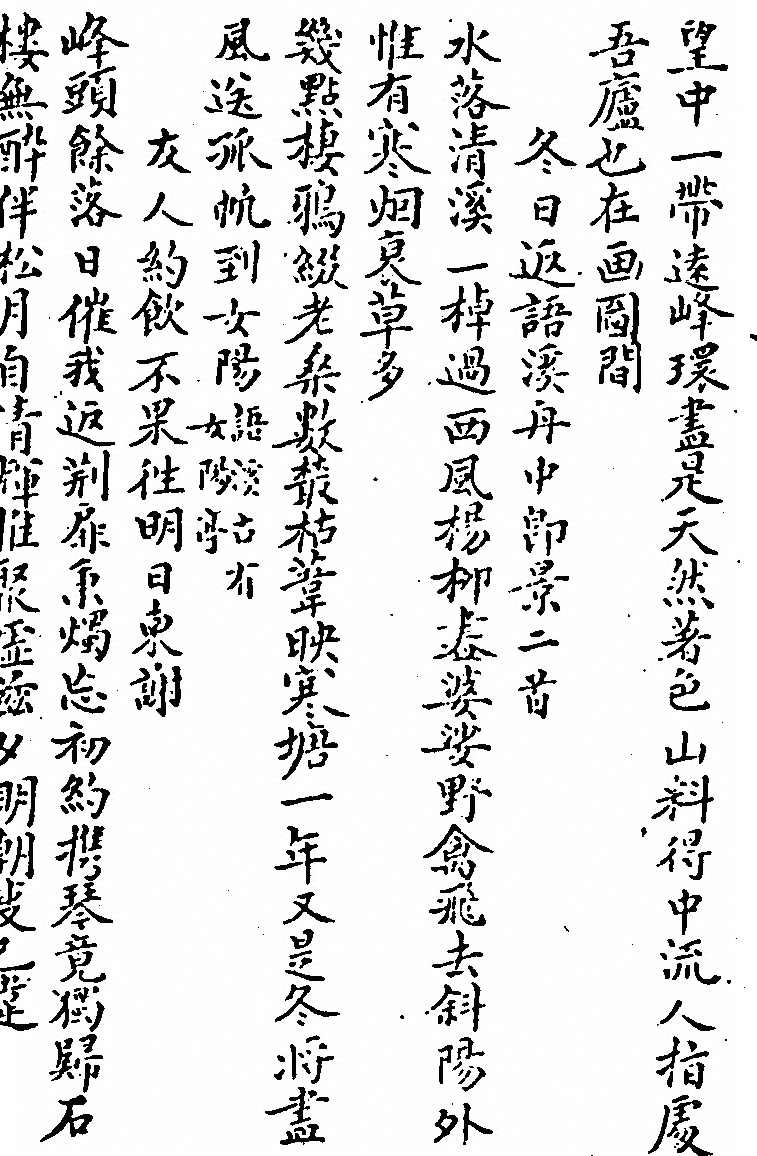 望中一帶遠峰環盡是天然著色山料得中流人指處
吾廬也在画圖間
冬日返語溪舟中即景二首
水落清溪一棹過西風楊柳尚婆娑野禽飛去斜陽外
惟有寒烟衰草多
幾點棲鴉綴老桑數叢枯葦映寒塘一年又是冬將盡
風送孤帆到女陽語溪古有女陽亭
友人約飲不果往明日東謝
峰頭餘落日催我返荆扉秉燭忘初約携琴竟獨歸石
樓無醉伴松月自清輝惟明朝